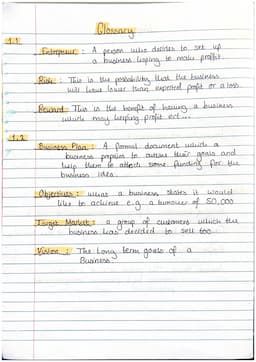 Glossary
1.1
Entrepreneur : A person who decides to set up
a business hoping to make profit.
Risk : This is the possibility that the business
will have lower than expected profit or a loss.
Reward : This is the benefit of having a business
which may keeping profit ect...
1.2
Business Plan : A formal document which a
business prepares to outline their goals and
help them to attach some funding for the
business idea.
Objectives : what a business states it would
like to achieve e.g a turnover of 50,000
Target Market : a group of customers which the
business has decided to sell too.
Vision : The Long term goals of a
Business.